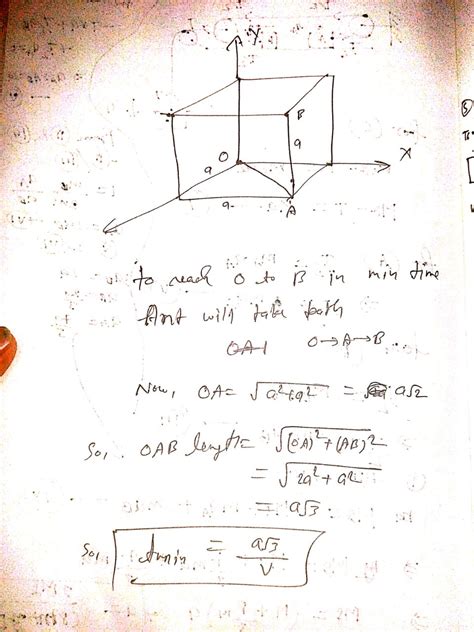 Y
B
O
a
X
a
a
A
to reach O to B in min time
Ant will take path
OA O→A→B.
Now, OA = √a²+a² = a√2
So, OAB length = √(OA)²+(AB)²
= √2a²+a²
= a√3
So, tmin = a√3/V